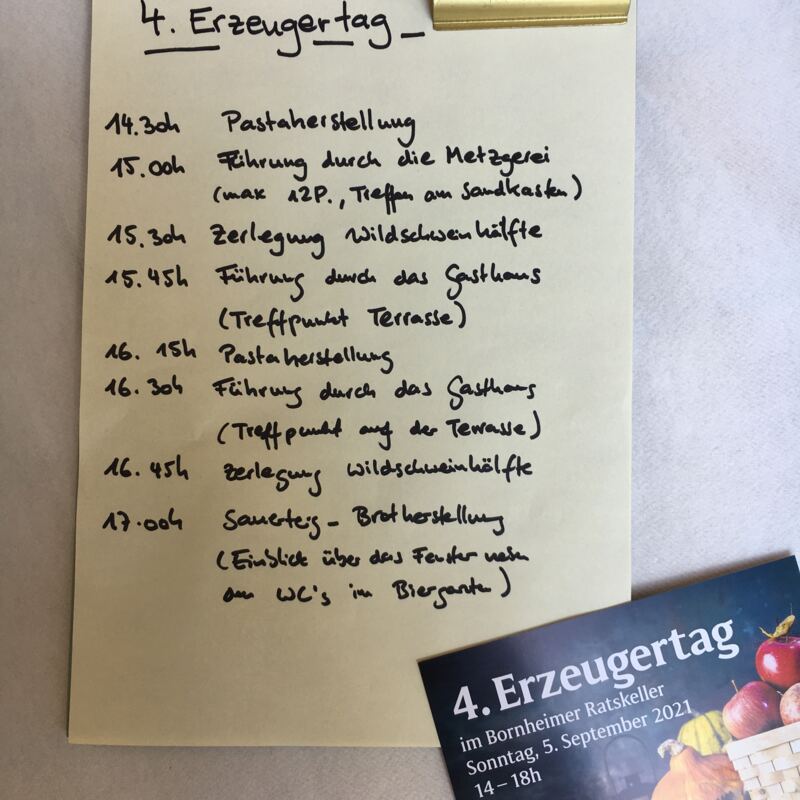 4. Erzeugertag
14.30h Pastaherstellung
15.00h Führung durch die Metzgerei
(max 12P., Treffen am Sandkasten)
15.30h Zerlegung Wildschweinhälfte
15.45h Führung durch das Gasthaus
(Treffpunkt Terrasse)
16.15h Pastaherstellung
16.30h Führung durch das Gasthaus
(Treffpunkt auf der Terrasse)
16.45h Zerlegung Wildschweinhälfte
17.00h Sauerteig-Brotherstellung
(Einblick über das Fenster neben
den WC's im Biergarten)
4. Erzeugertag
im Bornheimer Ratskeller
Sonntag, 5. September 2021
14 – 18h